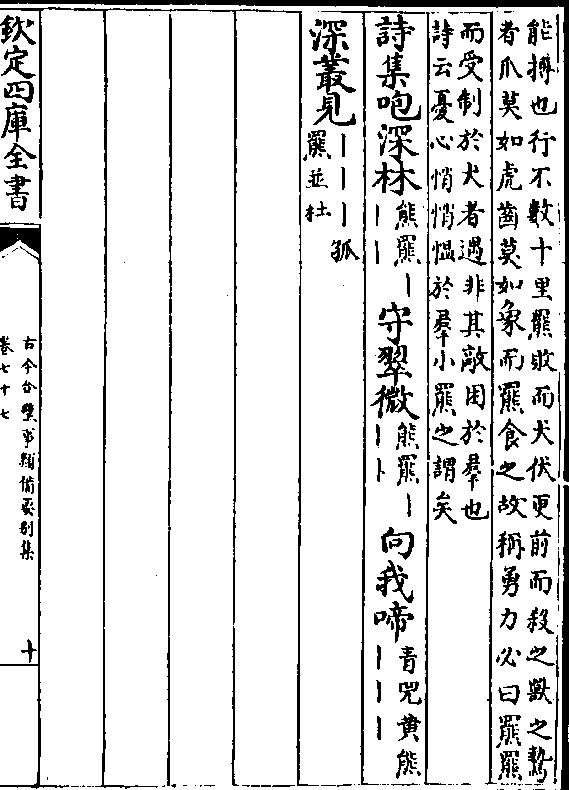 能搏也行不數十里羆敗而犬伏更前而殺之獸之鷙
者爪莫如虎齒莫如象而羆食之故稱勇力必曰羆羆
而受制於犬者遇非其敵困於羣也
詩云憂心悄悄慍於羣小羆之謂矣
詩集咆深林熊羆丨丨丨守翠微熊羆丨丨丨向我啼青兕黄熊丨丨丨
深叢見丨丨丨孤羆並杜
欽定四庫全書
古今合璧事類備要别集
卷七十七
十